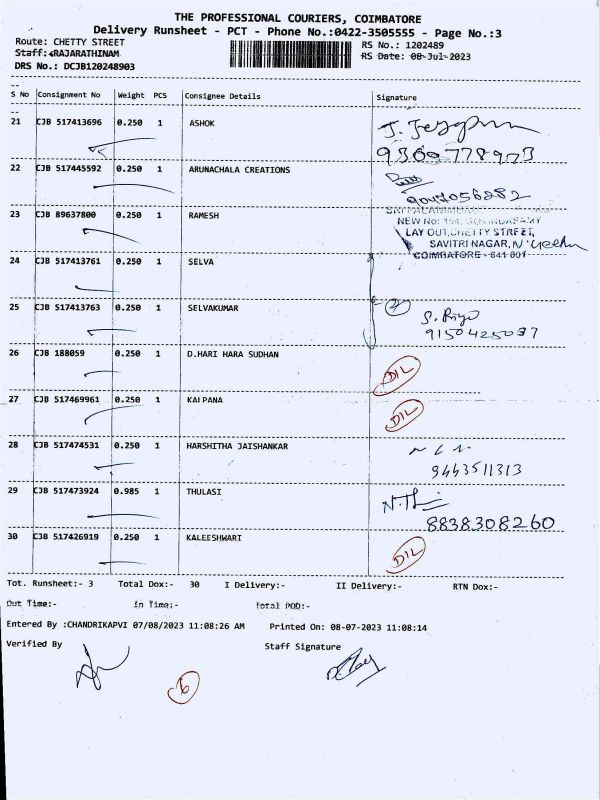 THE PROFESSIONAL COURIERS, COIMBATORE
Delivery Runsheet - PCT - Phone No.:0422-3505555 - Page No.:3
Route: CHETTY STREET
RS No.: 1202489
Staff: RAJARATHINAM
RS Date: 08-Jul-2023
DRS No.: DCJB120248903
S No Consignment No Weight PCS Consignee Details Signature
21 CJB 517413696 0.250 1 ASHOK
9360778973
22 CJB 517445592 0.250 1 ARUNACHALA CREATIONS
9047056282
23 CJB 89637800 0.250 1 RAMESH
NEW No: 154,
LAY OUT, CHETTY STREET,
SAVITRI NAGAR,
COIMBATORE - 641 001
24 CJB 517413761 0.250 1 SELVA
25 CJB 517413763 0.250 1 SELVAKUMAR
2
S. Priya
9150425037
26 CJB 188059 0.250 1 D.HARI HARA SUDHAN
DIL
27 CJB 517469961 0.250 1 KALPANA
DIL
28 CJB 517474531 0.250 1 HARSHITHA JAISHANKAR
9443511313
29 CJB 517473924 0.985 1 THULASI
8838308260
30 CJB 517426919 0.250 1 KALEESHWARI
DIL
Tot. Runsheet:- 3 Total Dox:- 30 I Delivery:- II Delivery:- RTN Dox:-
Out Time:- In Time:- Total POD:-
Entered By :CHANDRIKAPVI 07/08/2023 11:08:26 AM Printed On: 08-07-2023 11:08:14
Verified By Staff Signature
6